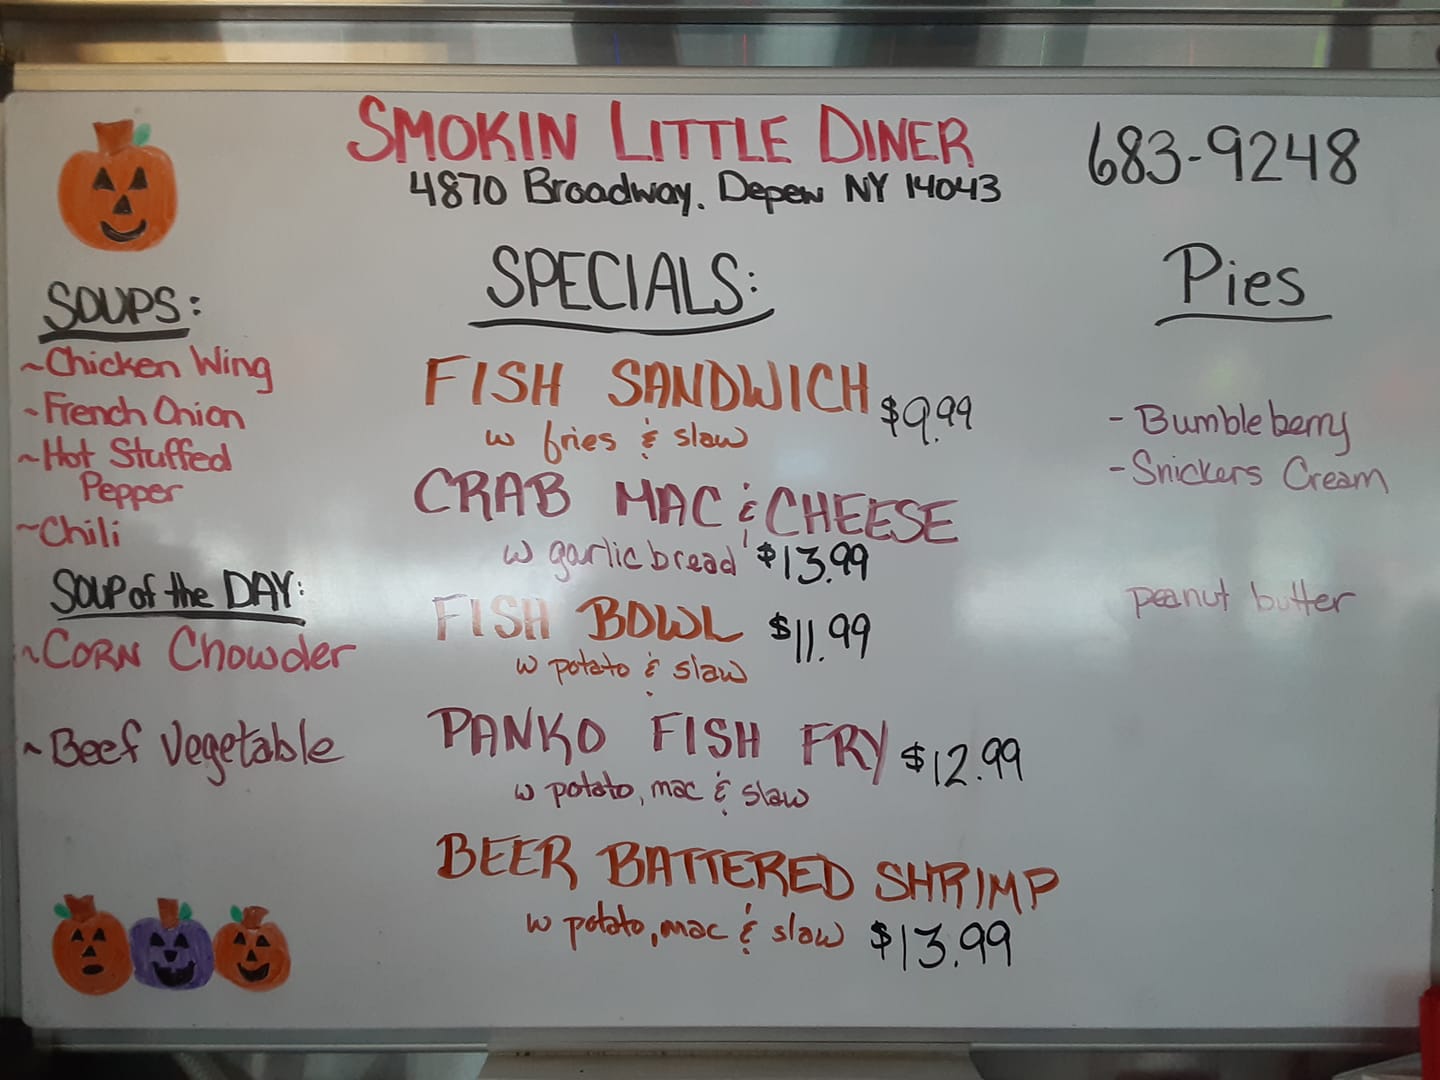 SMOKIN LITTLE DINER
4870 Broadway, Depew NY 14043
683-9248
SOUPS:
~Chicken Wing
~French Onion
~Hot Stuffed
Pepper
~Chili
SOUP of the DAY:
~CORN Chowder
~Beef Vegetable
SPECIALS:
FISH SANDWICH $9.99
w fries & slaw
CRAB MAC & CHEESE
w garlic bread $13.99
FISH BOWL $11.99
w potato & slaw
PANKO FISH FRY $12.99
w potato, mac & slaw
BEER BATTERED SHRIMP
w potato, mac & slaw $13.99
Pies
- Bumbleberry
- Snickers Cream
peanut butter